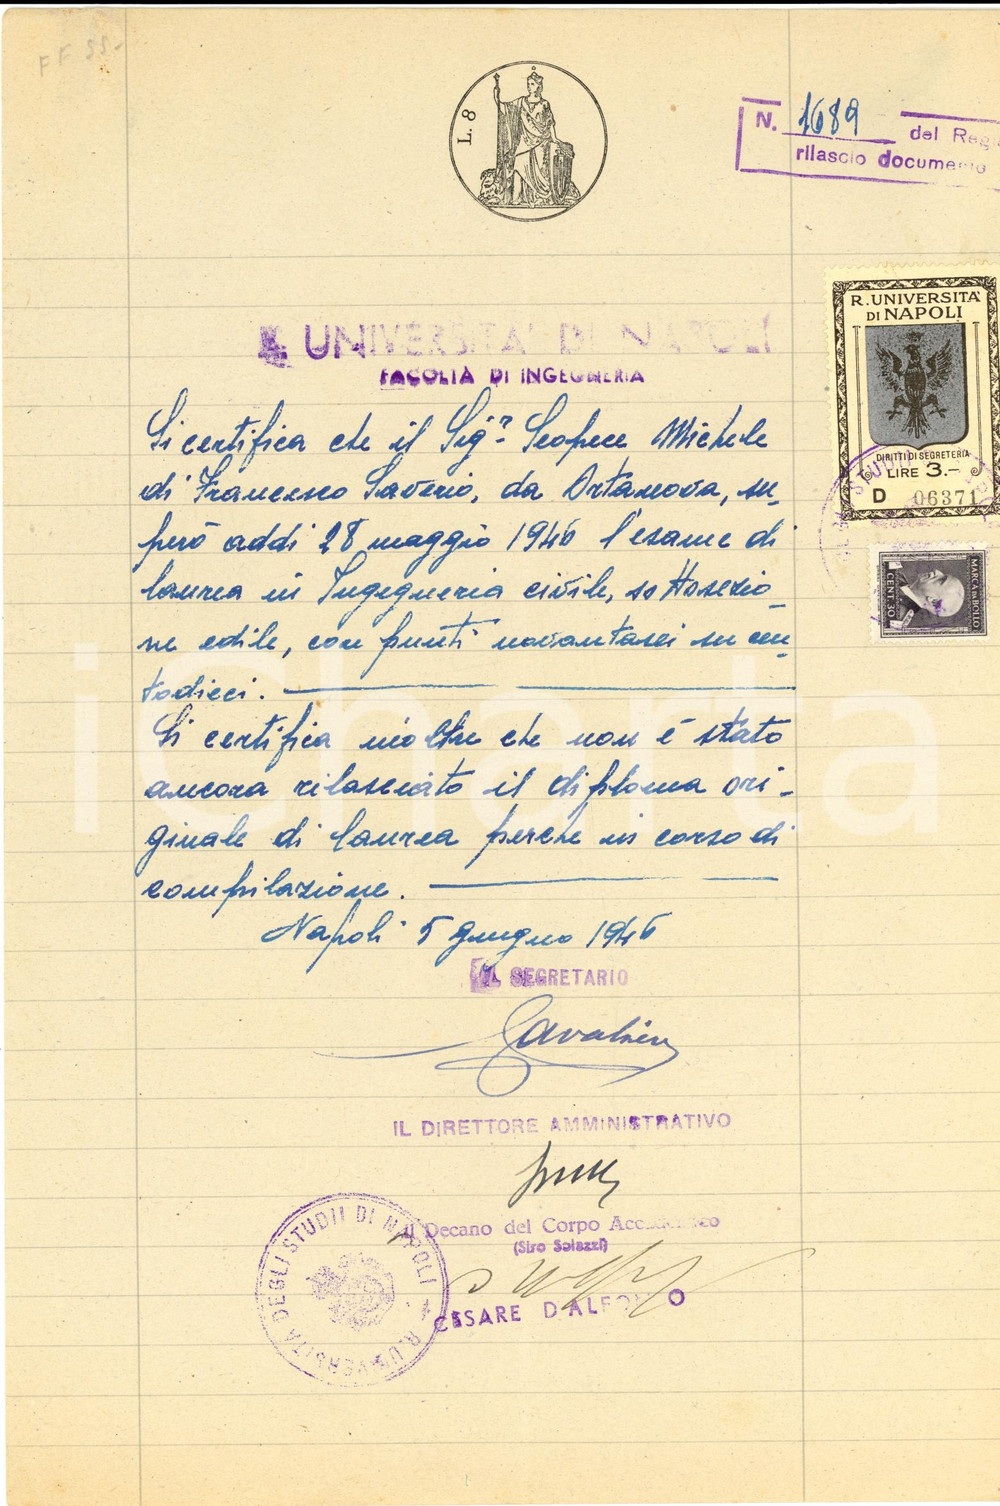 FF 55-
L. 8
N. 1689 del Reg
rilascio documento
R. UNIVERSITA'
DI NAPOLI
DIRITTI DI SEGRETERIA
LIRE 3.-
D 06371
MARCA DA BOLLO
CENT. 30
UNIVERSITA' DI NAPOLI
FACOLTÀ DI INGEGNERIA
Si certifica che il Sig.r Scopece Michele
di Francesco Saverio, da Ortanova, su-
però addì 28 maggio 1946 l'esame di
laurea in Ingegneria civile, sottosezio-
ne edile, con punti novantasei su cen-
todieci.
Si certifica inoltre che non è stato
ancora rilasciato il diploma ori-
ginale di laurea perchè in corso di
compilazione.
Napoli 5 giugno 1946
IL SEGRETARIO
IL DIRETTORE AMMINISTRATIVO
Il Decano del Corpo Accademico
(Siro Solazzi)
CESARE D'ALFONSO
R. UNIVERSITÀ DEGLI STUDII DI NAPOLI
iCharta